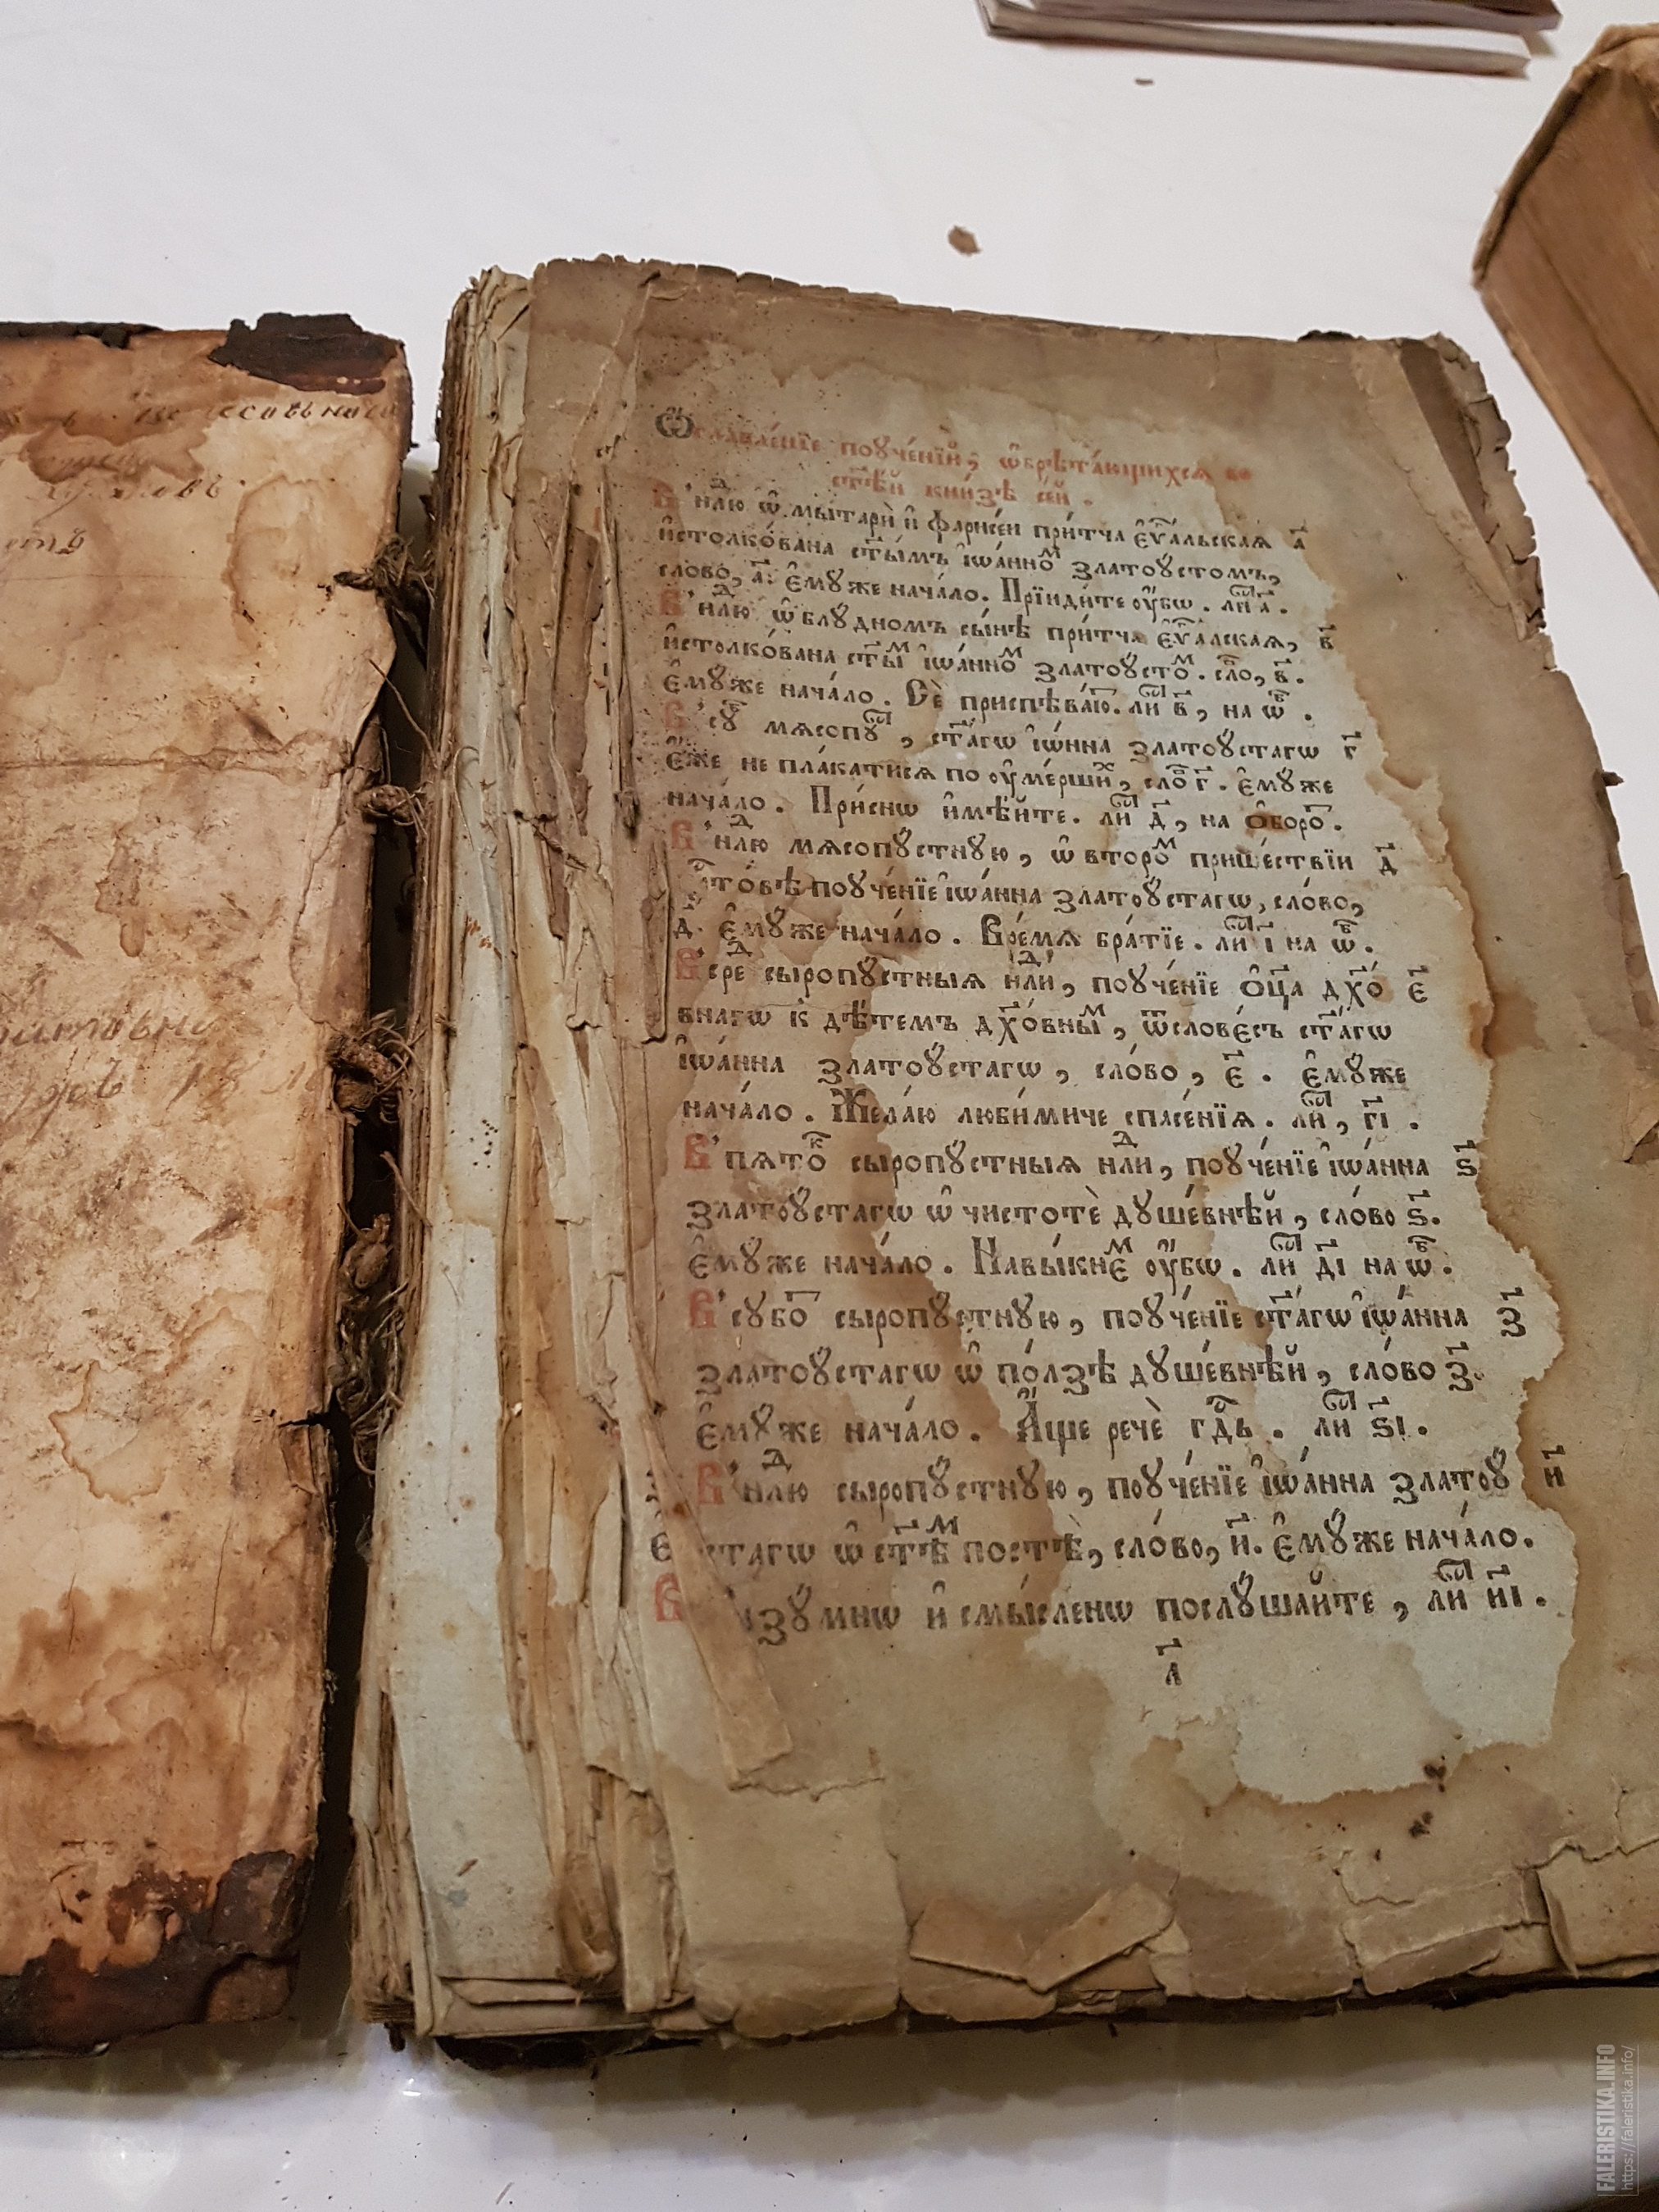 Ѡ҆главле́нїе поꙋче́нїй, ѡ҆брѣта́ющихсѧ во
ст҃ѣ́й кни́зѣ се́й.
В' нⷣлю ѡ҆ мытарѝ и҆ фарисе́и при́тча є҆ѵⷢ҇а́льскаѧ а҃
и҆столко́вана ст҃ы́мъ і҆ѡа́нноⷨ златоꙋ́стомъ,
сло́во, а҃. Є҆мꙋ́же нача́ло. Прїиди́те ᲂу҆́бѡ. лиⷭ҇ а҃.
В' нⷣлю ѡ҆ блꙋ́дномъ сы́нѣ при́тча є҆ѵⷢ҇а́лскаѧ, в҃
и҆столко́вана ст҃ыⷨ і҆ѡа́нноⷨ златоꙋ́стоⷨ. сло́, в҃.
Є҆мꙋ́же нача́ло. Сѐ приспѣва́ю. лиⷭ҇ в҃, на ѡ҆бⷪ҇.
В' сꙋⷠ҇ мѧсопꙋⷭ҇, ст҃а́гѡ і҆ѡ́нна златоꙋ́стагѡ г҃
Є҆́же не пла́катисѧ по ᲂу҆ме́ршиⷯ, слоⷡ҇ г҃. Є҆мꙋ́же
нача́ло. При́снѡ и҆мѣ́йте. лиⷭ҇ д҃, на ѻ҆боро́.
В' нⷣлю мѧсопꙋ́стнꙋю, ѡ҆ второ́ⷨ прише́ствїи д҃
хрⷭ҇то́вѣ поꙋче́нїе і҆ѡа́нна златоꙋ́стагѡ, сло́во,
д҃. Є҆мꙋ́же нача́ло. Вре́мѧ бра́тїе. лиⷭ҇ і҃ на ѡ҆бⷪ҇.
В' среⷣ сыропꙋ́стныѧ нⷣли, поꙋче́нїе ѻ҆ц҃а̀ дх҃о́ е҃
внагѡ к̾ дѣ́темъ дх҃о́вныⷨ, ѿ слове́съ ст҃а́гѡ
і҆ѡа́нна златоꙋ́стагѡ, сло́во, е҃. Є҆мꙋ́же
нача́ло. Жела́ю люби́миче спасе́нїѧ. лиⷭ҇, гі҃.
В' пѧто́ⷦ сыропꙋ́стныѧ нⷣли, поꙋче́нїе і҆ѡа́нна ѕ҃
златоꙋ́стагѡ ѡ҆ чистотѐ дꙋше́внѣй, сло́во ѕ҃.
Є҆мꙋ́же нача́ло. Навы́кнеⷨ ᲂу҆́бѡ. лиⷭ҇ ді҃ на ѡ҆бⷪ҇.
В' сꙋбо́ сыропꙋ́стнꙋю, поꙋче́нїе ст҃а́гѡ і҆ѡа́нна з҃
златоꙋ́стагѡ ѡ҆ по́лзѣ дꙋше́внѣй, сло́во з҃.
Є҆мꙋ́же нача́ло. А҆́ще речѐ гдⷭ҇ь. лиⷭ҇ ѕі҃.
В' нⷣлю сыропꙋ́стнꙋю, поꙋче́нїе і҆ѡа́нна златоꙋ́ и҃
стагѡ ѡ҆ ст҃ѣⷨ постѣ̀, сло́во, и҃. Є҆мꙋ́же нача́ло.
зꙋ́мнѡ и҆ смы́сленѡ послꙋ́шайте, лиⷭ҇ иі҃.
а҃
FALERISTIKA.INFO
https://faleristika.info/